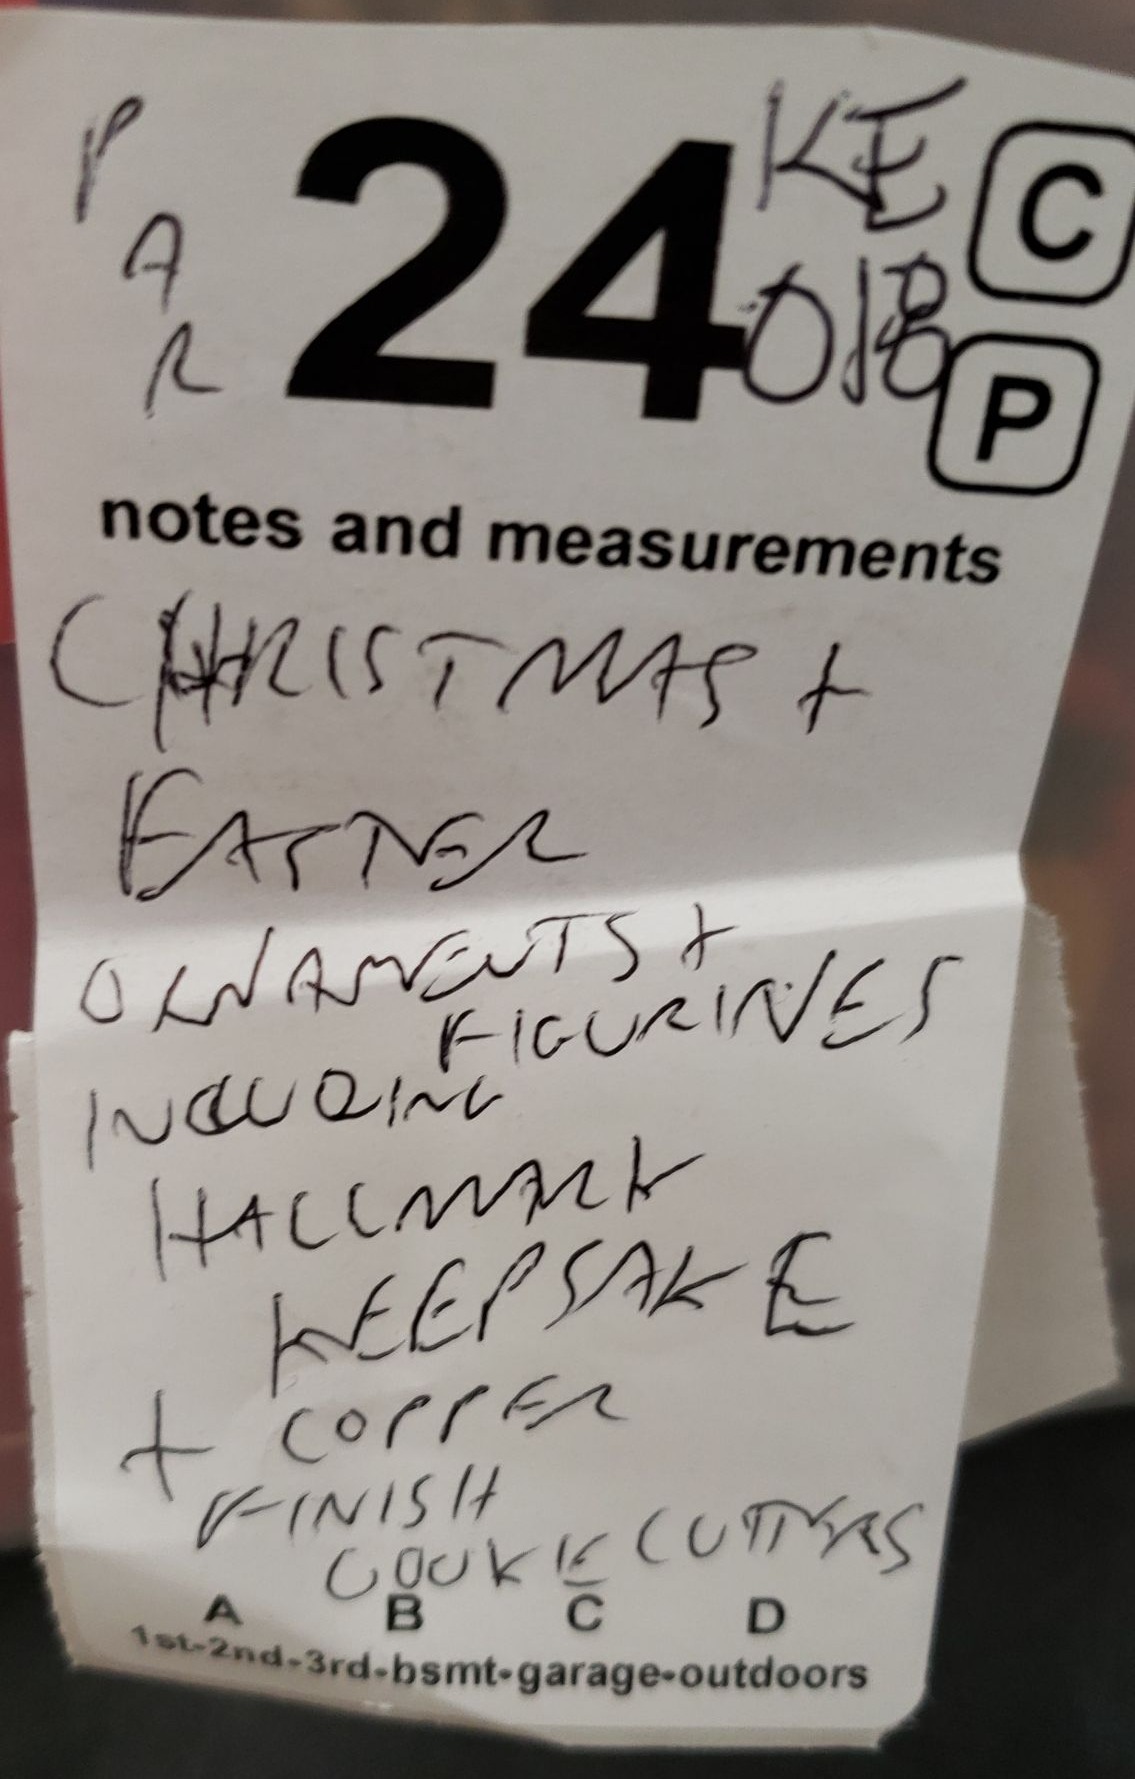 PAR
24
KE
018
C
P
notes and measurements
CHRISTMAS +
EASTER
ORNAMENTS +
FIGURINES
INCLUDING
HALLMARK
KEEPSAKE
+ COPPER
FINISH
COOKIE CUTTERS
A B C D
1st-2nd-3rd-bsmt-garage-outdoors